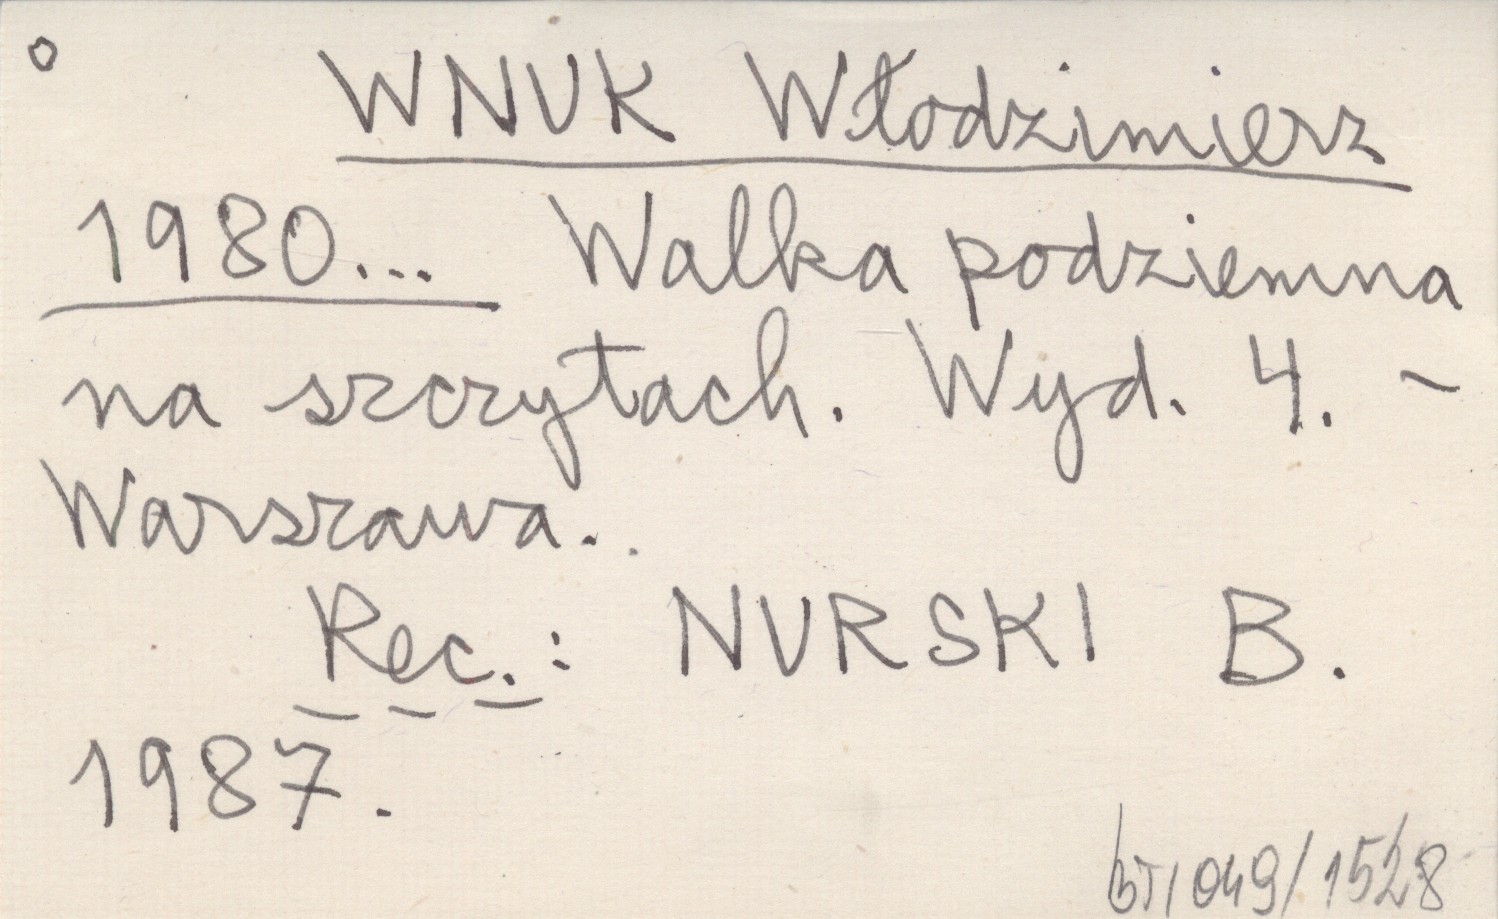 WNUK Włodzimierz
1980... Walka podziemna
na szczytach. Wyd. 4. -
Warszawa..
Rec.: NURSKI B.
1987.
049/1528